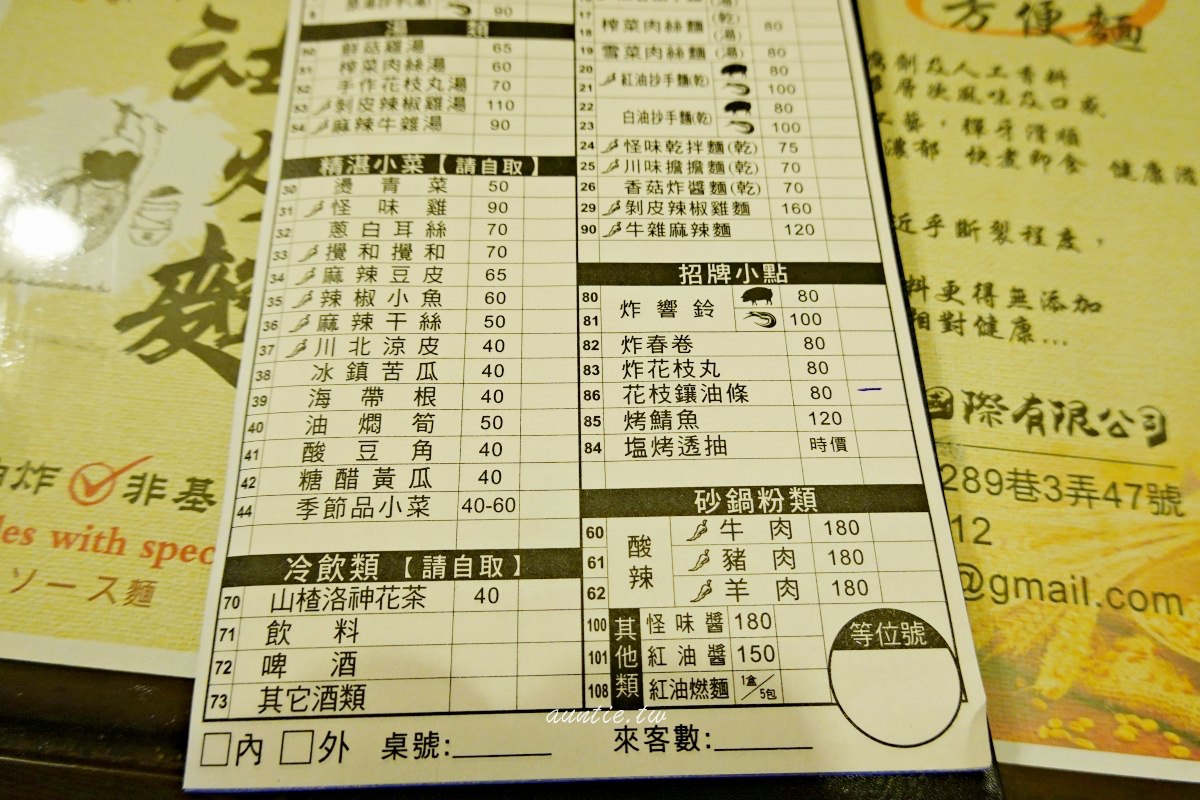 90
湯 類
50 鮮菇雞湯 65
51 榨菜肉絲湯 60
52 手作花枝丸湯 70
53 剝皮辣椒雞湯 110
54 麻辣牛雜湯 90
精湛小菜【請自取】
30 燙青菜 50
31 怪味雞 90
32 蔥白耳絲 70
33 攪和攪和 70
34 麻辣豆皮 65
35 辣椒小魚 60
36 麻辣干絲 50
37 川北涼皮 40
38 冰鎮苦瓜 40
39 海帶根 40
40 油燜筍 50
41 酸豆角 40
42 糖醋黃瓜 40
44 季節品小菜 40-60
冷飲類【請自取】
70 山楂洛神花茶 40
71 飲料
72 啤酒
73 其它酒類
內 外 桌號:
17 (乾)
18 榨菜肉絲麵 (湯) 80
19 雪菜肉絲麵(湯) 80
20 紅油抄手麵(乾) 80
21 100
22 白油抄手麵(乾) 80
23 100
24 怪味乾拌麵(乾) 75
25 川味擔擔麵(乾) 70
26 香菇炸醬麵(乾) 70
29 剝皮辣椒雞麵 160
90 牛雜麻辣麵 120
招牌小點
80 炸響鈴 80
81 100
82 炸春卷 80
83 炸花枝丸 80
86 花枝鑲油條 80
85 烤鯖魚 120
84 塩烤透抽 時價
砂鍋粉類
酸辣
60 牛肉 180
61 豬肉 180
62 羊肉 180
其他類
100 怪味醬 180
101 紅油醬 150
108 紅油燃麵 1盒/5包
等位號
來客數:
auntie.tw
油炸 非基
les with spec
ソース麵
方便麵
劑及人工香料
層次風味及口感
工藝,彈牙滑順
濃郁 快煮即食 健康滿
近乎斷製程度,
料更得無添加
相對健康...
國際有限公司
289巷3弄47號
12
@gmail.com